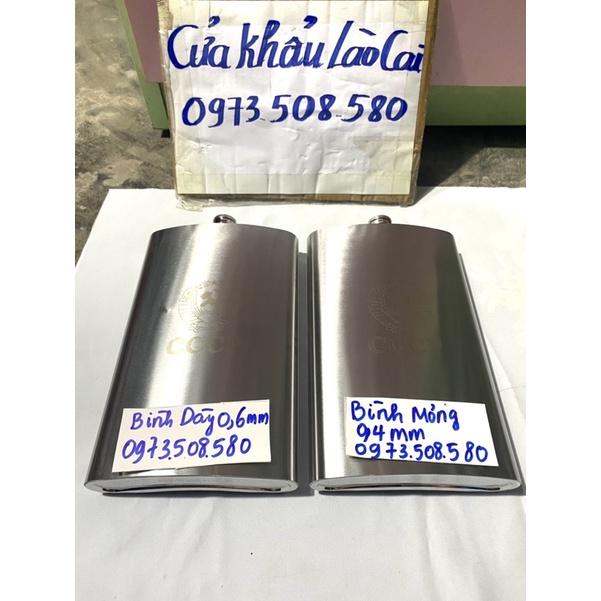 Cửa Khẩu Lào Cai
0973.508.580
CCCP
Bình Dày 0,6mm
0973.508.580
Bình Mỏng
0,4 mm
0973.508.580